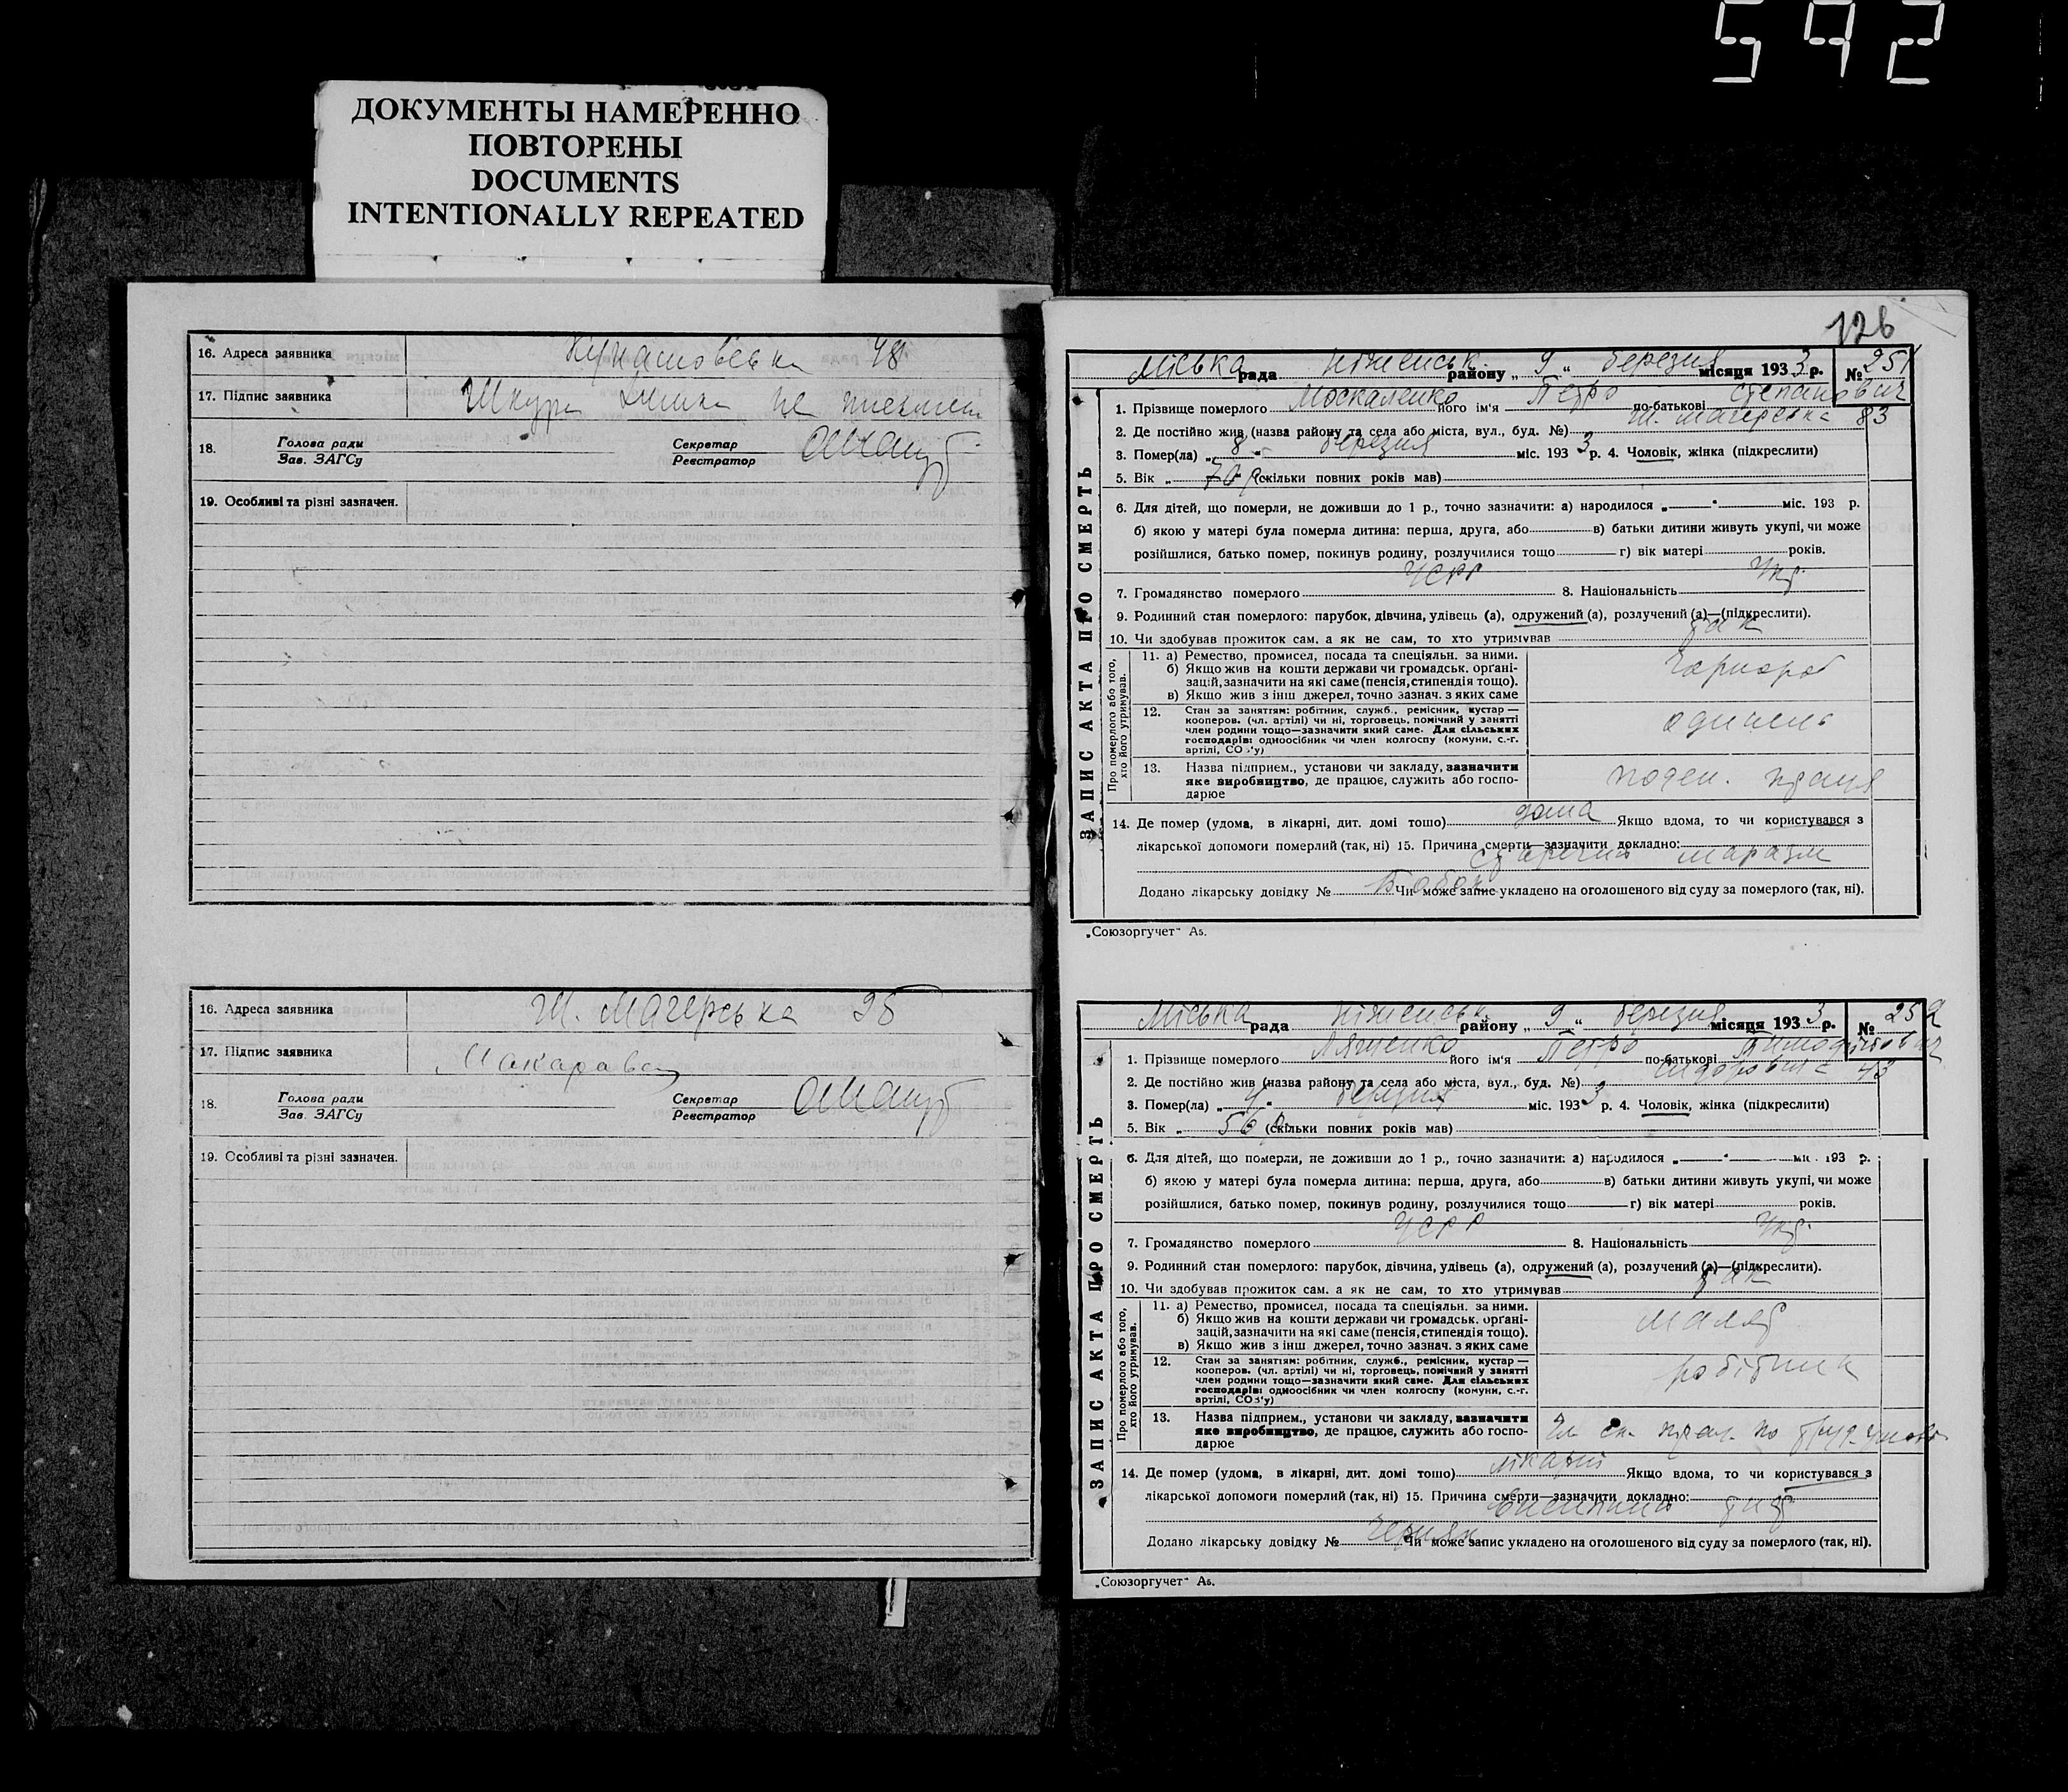 592
ДОКУМЕНТЫ НАМЕРЕННО
ПОВТОРЕНЫ
DOCUMENTS
INTENTIONALLY REPEATED
16. Адреса заявника 48
17. Підпис заявника Шкура не письмен
18. Голова ради Секретар
Зав. ЗАГСу Реєстратор
19. Особливі та різні зазначен.
16. Адреса заявника Ш. Магерська
17. Підпис заявника
18. Голова ради Секретар
Зав. ЗАГСу Реєстратор
19. Особливі та різні зазначен.
126
ЗАПИС АКТА ПРО СМЕРТЬ
Міська рада Ніженськ. району „ 9 “ березня місяця 1933 р. № 251
1. Прізвище померлого Москаленко його ім'я Петро по-батькові Степанович
2. Де постійно жив (назва району та села або міста, вул., буд. №) Ш. Магерська 83
3. Помер(ла) „ 8 “ березня міс. 1933 р. 4. Чоловік, жінка (підкреслити)
5. Вік „ 70 р. (скільки повних років мав)
6. Для дітей, що померли, не доживши до 1 р., точно зазначити: а) народилося „ “ міс. 193 р.
б) якою у матері була померла дитина: перша, друга, або в) батьки дитини живуть укупі, чи може
розійшлися, батько помер, покинув родину, розлучилися тощо г) вік матері років.
7. Громадянство померлого УСРР 8. Національність Укр.
9. Родинний стан померлого: парубок, дівчина, удівець (а), одружений (а), розлучений (а)—(підкреслити).
10. Чи здобував прожиток сам. а як не сам, то хто утримував так
Про померлого або того, хто його утримував.
11. а) Ремество, промисел, посада та спеціяльн. за ними.
б) Якщо жив на кошти держави чи громадськ. орґані-
зацій, зазначити на які саме (пенсія, стипендія тощо).
в) Якщо жив з інш джерел, точно зазнач. з яких саме
чорнороб
12. Стан за заняттям: робітник, служб., ремісник, кустар—
кооперов. (чл. артілі) чи ні, торговець, помічний у занятті
член родини тощо—зазначити який саме. Для сільських
господарів: одноосібник чи член колгоспу (комуни, с.-г.
артілі, СОЗ'у)
13. Назва підприєм., установи чи закладу, зазначити
яке виробництво, де працює, служить або госпо-
дарює
поден. праця
14. Де помер (удома, в лікарні, дит. домі тощо) дома Якщо вдома, то чи користувався з
лікарської допомоги померлий (так, ні) 15. Причина смерти—зазначити докладно:
старечий маразм
Додано лікарську довідку № Чи може запис укладено на оголошеного від суду за померлого (так, ні).
„Союзоргучет“ А5.
ЗАПИС АКТА ПРО СМЕРТЬ
Міська рада Ніженськ. району „ 9 “ березня місяця 1933 р. № 252
1. Прізвище померлого Ляшенко його ім'я Петро по-батькові
2. Де постійно жив (назва району та села або міста, вул., буд. №) 43
3. Помер(ла) „ “ березня міс. 1933 р. 4. Чоловік, жінка (підкреслити)
5. Вік „ 56 р. (скільки повних років мав)
6. Для дітей, що померли, не доживши до 1 р., точно зазначити: а) народилося „ “ міс. 193 р.
б) якою у матері була померла дитина: перша, друга, або в) батьки дитини живуть укупі, чи може
розійшлися, батько помер, покинув родину, розлучилися тощо г) вік матері років.
7. Громадянство померлого УСРР 8. Національність Укр.
9. Родинний стан померлого: парубок, дівчина, удівець (а), одружений (а), розлучений (а)—(підкреслити).
10. Чи здобував прожиток сам. а як не сам, то хто утримував так
Про померлого або того, хто його утримував.
11. а) Ремество, промисел, посада та спеціяльн. за ними.
б) Якщо жив на кошти держави чи громадськ. орґані-
зацій, зазначити на які саме (пенсія, стипендія тощо).
в) Якщо жив з інш джерел, точно зазнач. з яких саме
маляр
12. Стан за заняттям: робітник, служб., ремісник, кустар—
кооперов. (чл. артілі) чи ні, торговець, помічний у занятті
член родини тощо—зазначити який саме. Для сільських
господарів: одноосібник чи член колгоспу (комуни, с.-г.
артілі, СОЗ'у)
робітник
13. Назва підприєм., установи чи закладу, зазначити
яке виробництво, де працює, служить або госпо-
дарює
14. Де помер (удома, в лікарні, дит. домі тощо) лікарні Якщо вдома, то чи користувався з
лікарської допомоги померлий (так, ні) 15. Причина смерти—зазначити докладно:
тиф
Додано лікарську довідку № Чи може запис укладено на оголошеного від суду за померлого (так, ні).
„Союзоргучет“ А5.